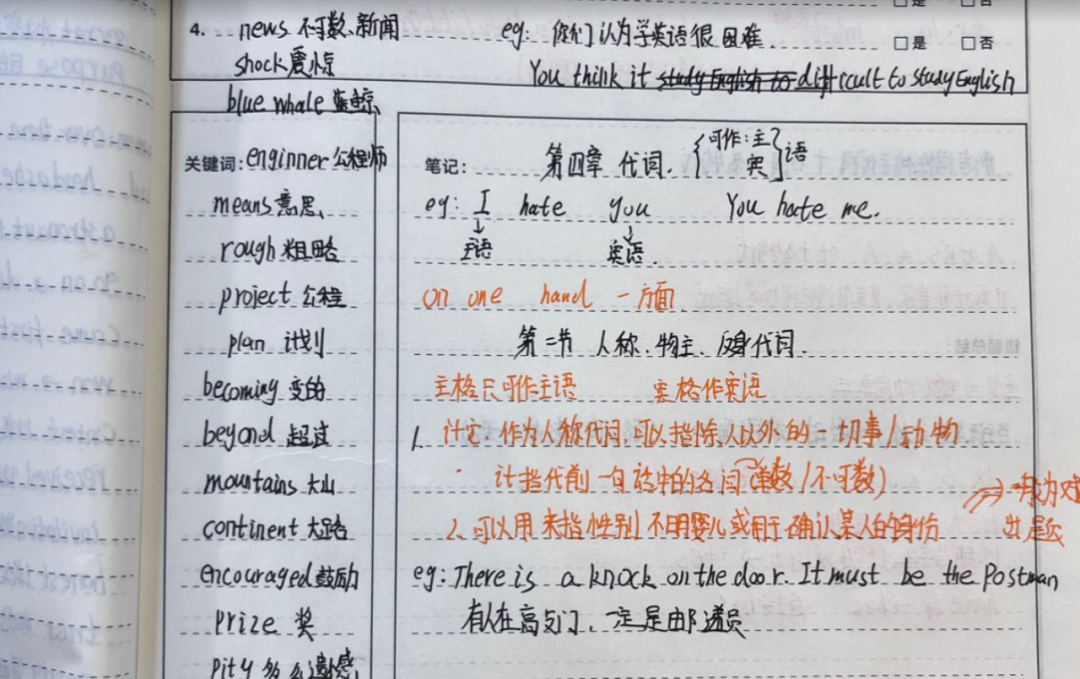 4. news 不可数、新闻
eg: 你们认为学英语很困难.
□是 □否
shock 震惊
You think it study English to difficult to study English
blue whale 蓝鲸
关键词: enginner 公程师
means 意思、
rough 粗略
project 公程
plan 计划
becoming 变的
beyond 超过
mountains 大山
continent 大路
encouraged 鼓励
prize 奖
pity
笔记: 第四章 代词. {可作:主 宾}语
eg: I hate you You hate me.
↓主语 ↓宾语.
on one hand 一方面
第二节 人称、物主、反身代词.
主格只可作主语 宾格作宾语
1. 作为人称代词,可以指除人以外的一切事/动物
指代前一句话中的名词(单数/不可数)
2. 可以用来指性别不明婴儿或用于确认某人的身份
出题
eg: There is a knock on the door. It must be the Postman
有人在高与门、一定是邮递员